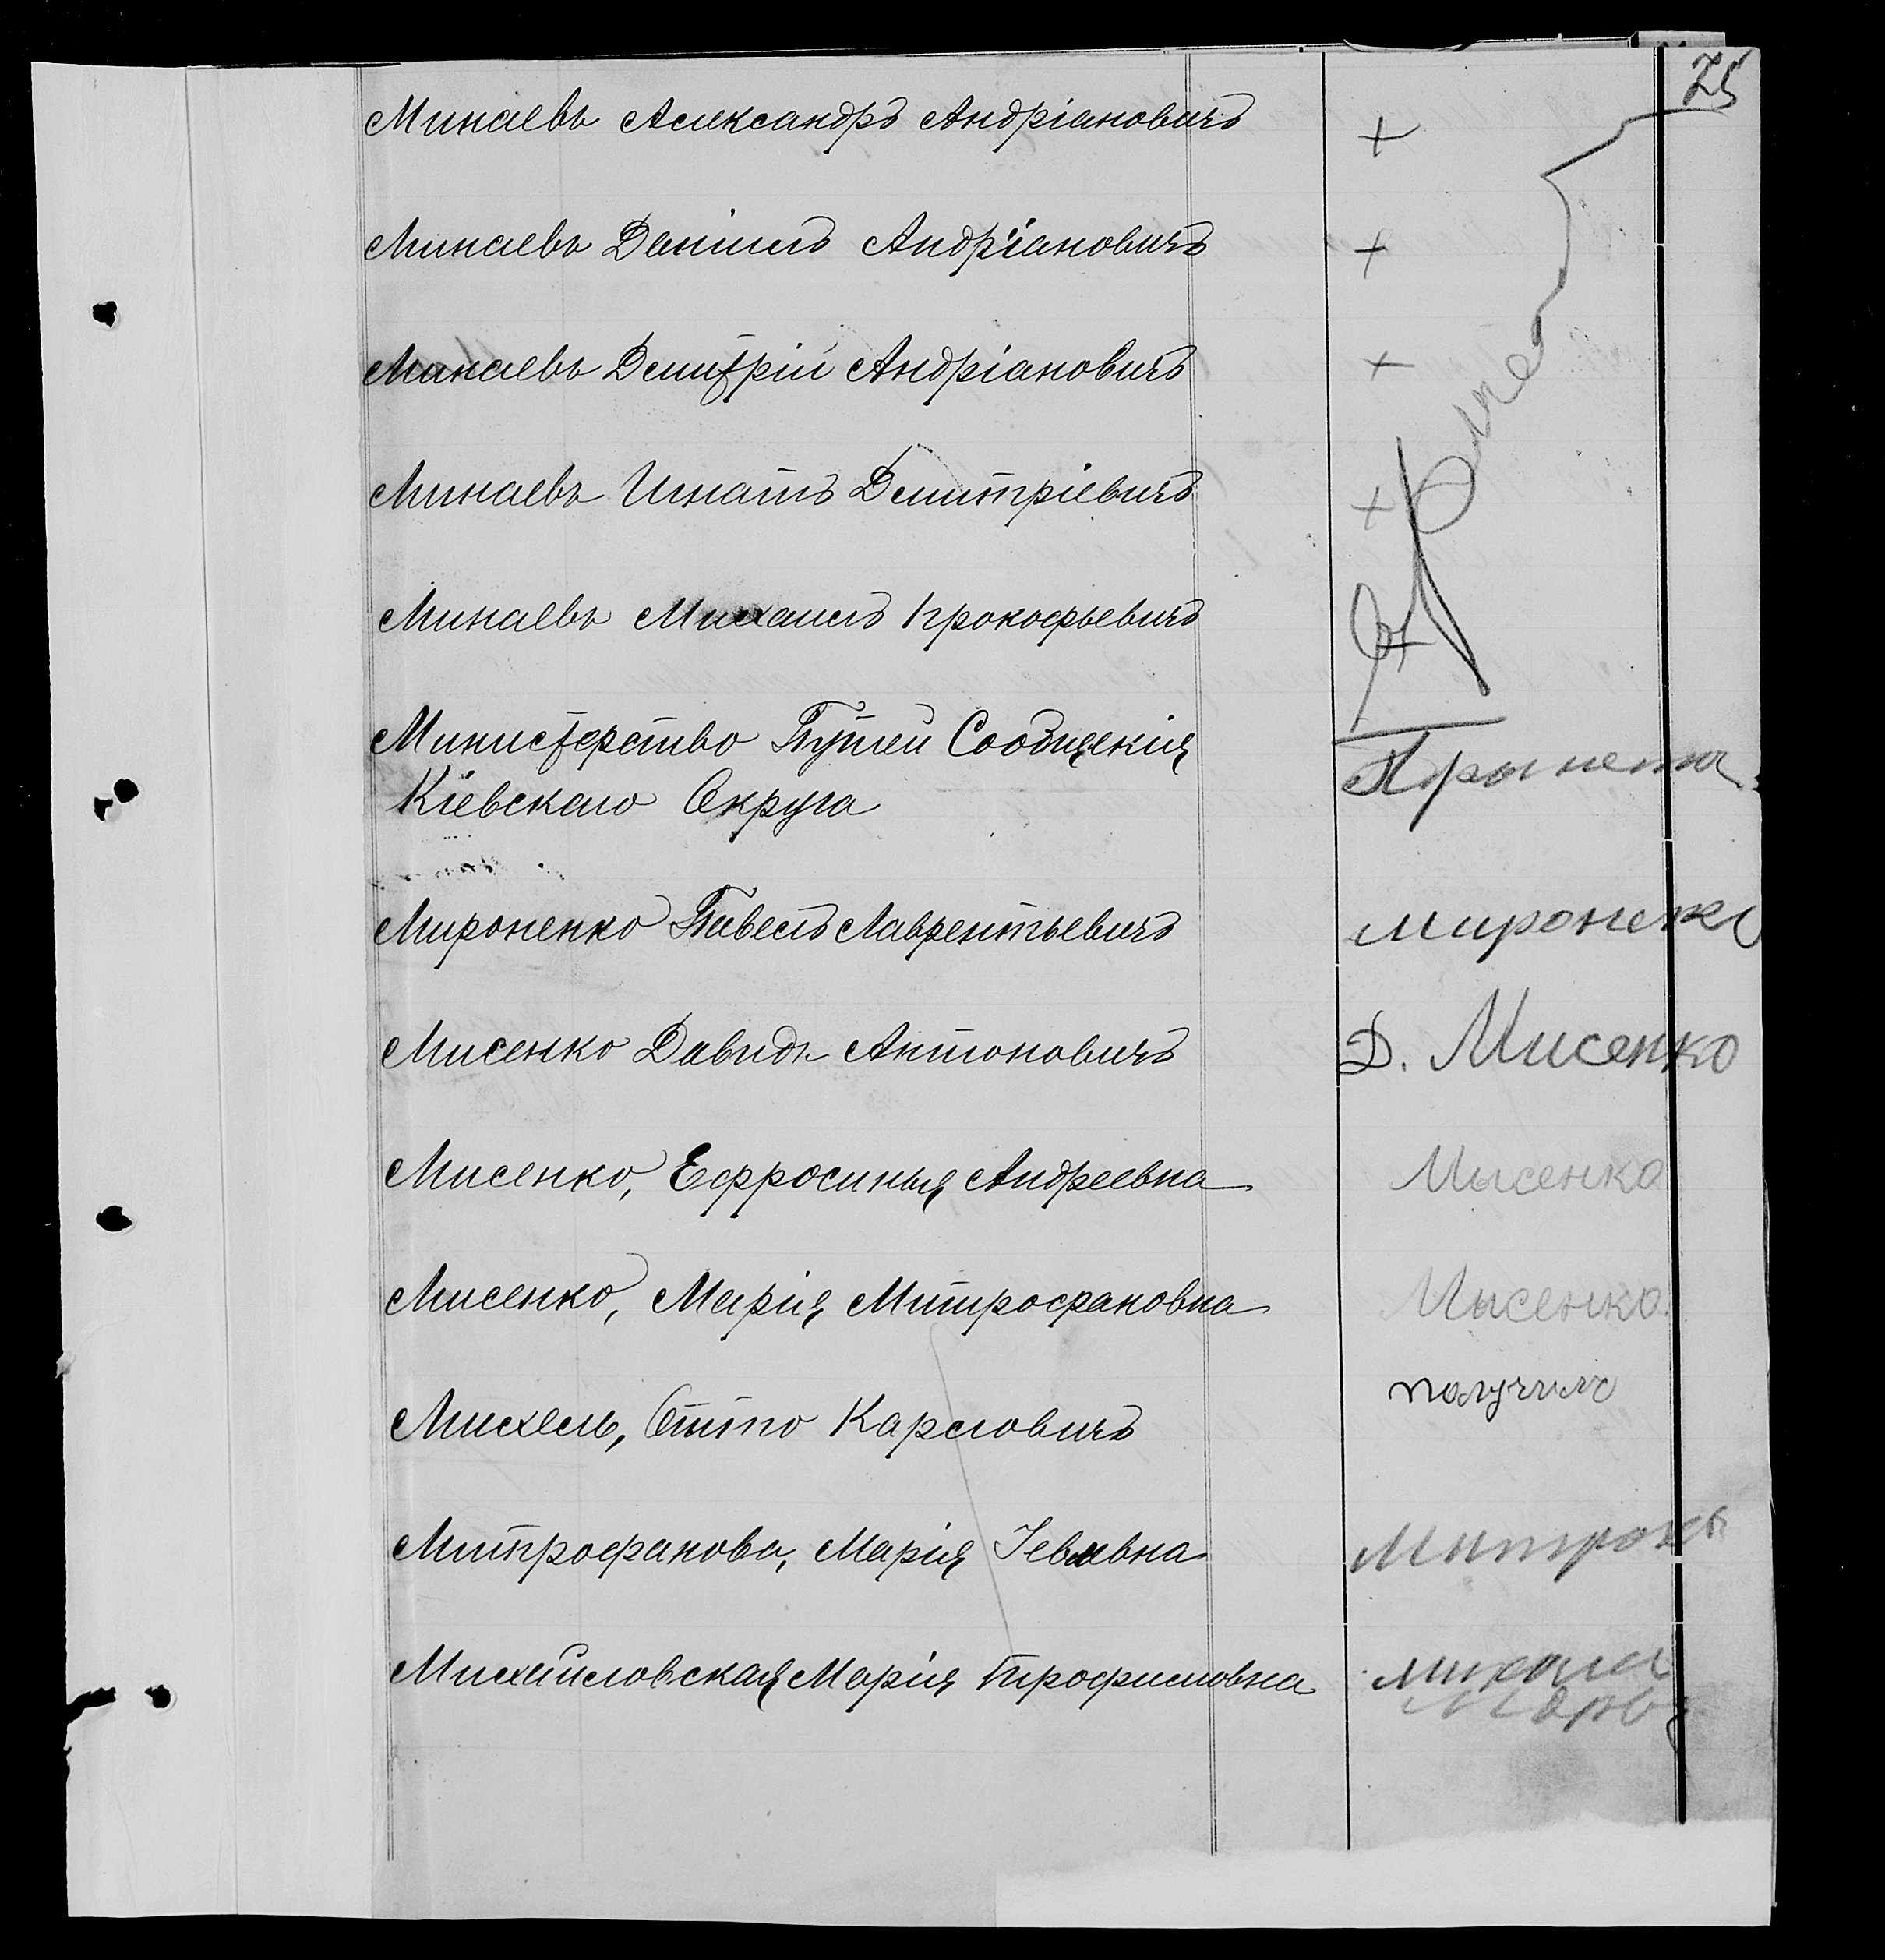 75
Минаевъ Александръ Андріановичъ +
Минаевъ Даніилъ Андріановичъ +
Минаевъ Дмитрій Андріановичъ +
Минаевъ Игнатъ Дмитріевичъ +
Минаевъ Михаилъ Прокофьевичъ +
Министерство Путей Сообщенія
Кіевскаго Округа
Мироненко Павелъ Лаврентьевичъ Миронеко
Мисенко Давидъ Антоновичъ Д. Мисенко
Мисенко, Ефросинья Андреевна Мысенко
Мисенко, Марія Митрофановна Мысенко
Михель, Отто Карловичъ получилъ
Митрофанова, Марія Іевлевна
Михайловская Марія Трофимовна